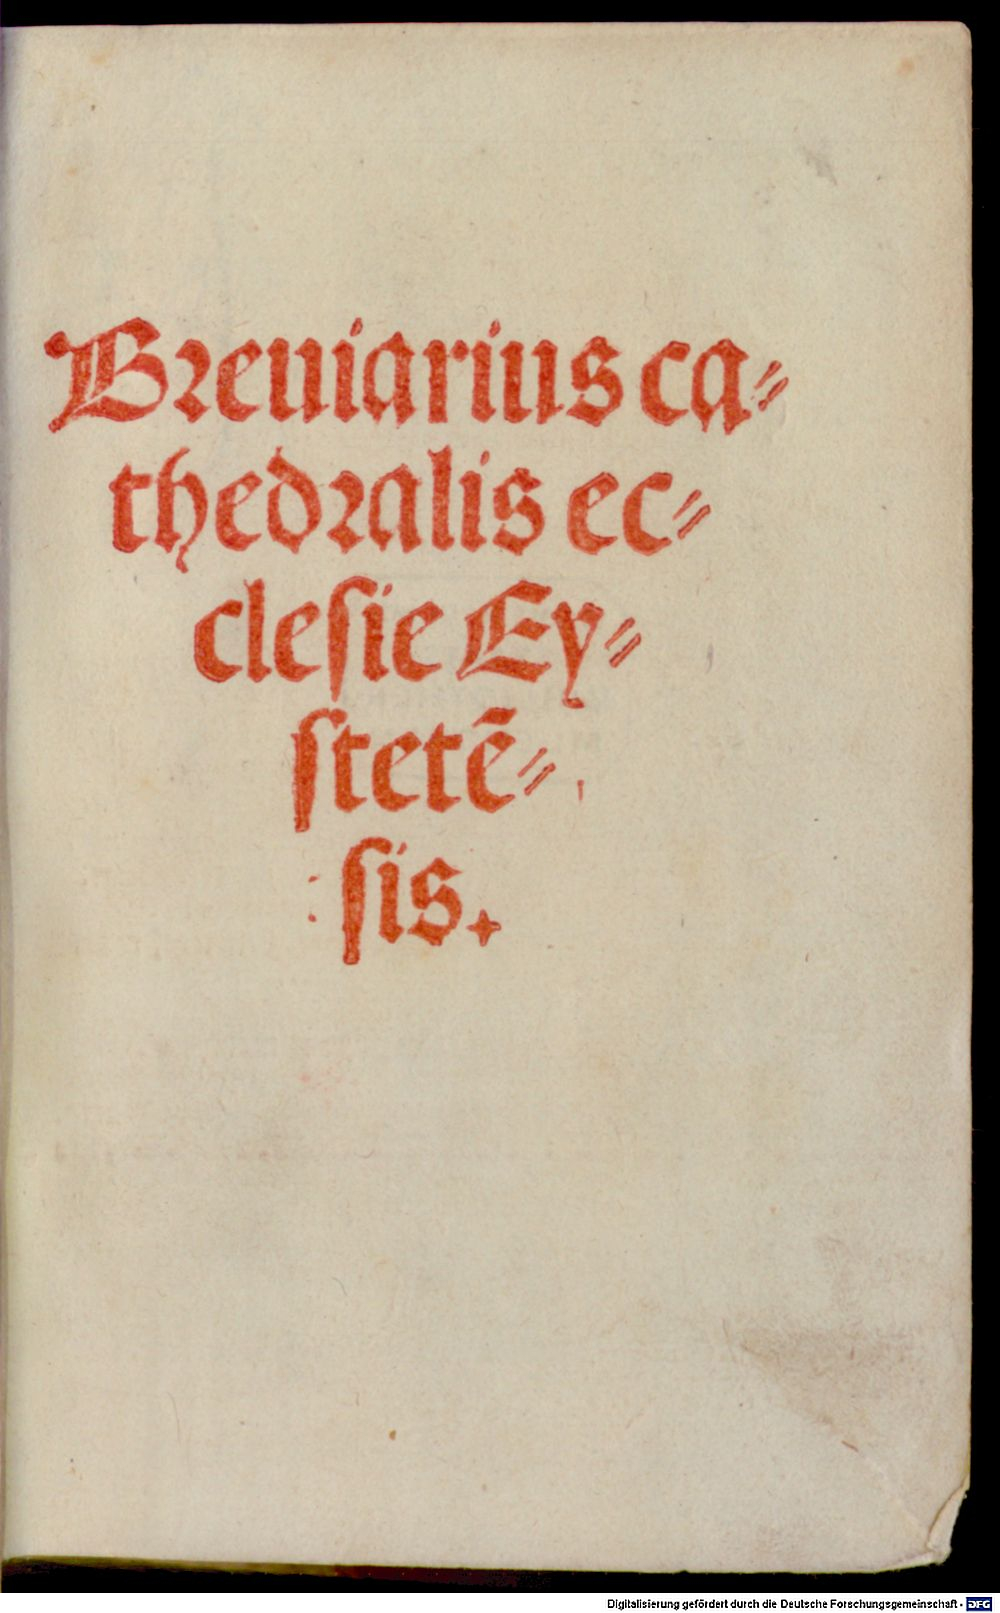 Breuiarius ca⸗
thedralis ec⸗
cleſie Ey⸗
ſtetē⸗
ſis.
Digitalisierung gefördert durch die Deutsche Forschungsgemeinschaft - DFG